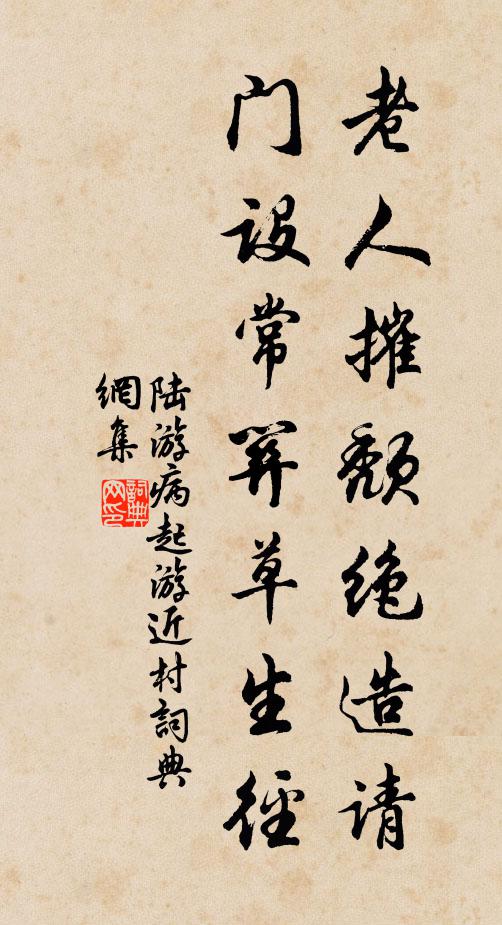 老人摧颓绝造请
门设常관草生径
陆游病起游近村词典
網集
詞典网印